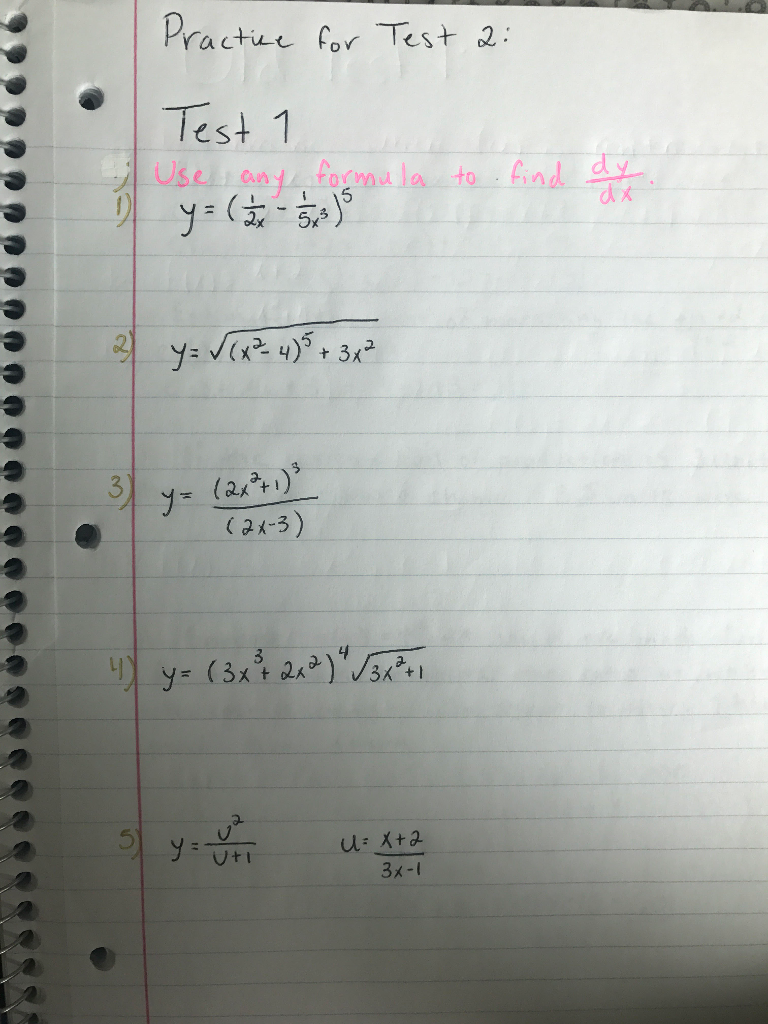 Practice for Test 2:
Test 1
Use any formula to find dy/dx.
1) y = (1/2x - 1/5x³)⁵
2) y = √((x² - 4)⁵ + 3x²)
3) y = (2x²+1)³/(2x-3)
4) y = (3x³ + 2x²)⁴ √(3x²+1)
5) y = U²/U+1 u = x+2/3x-1